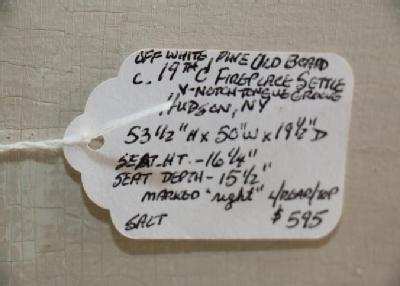 OFF WHITE, PINE OLD BOARD
C. 19TH C FIREPLACE SETTLE
V-NOTCH TONGUE GROOVE
HUDSON, NY
53 1/2" H x 50" W x 19 1/2" D
SEAT HT. - 16 1/4"
SEAT DEPTH - 15 1/2"
MARKED "right" L/REAR/TOP
SALT $595